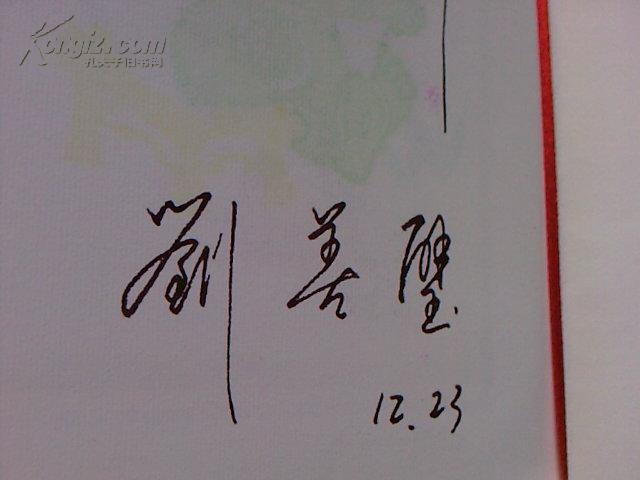 Kongfz.com
孔夫子旧书网
劉善璧
12.23